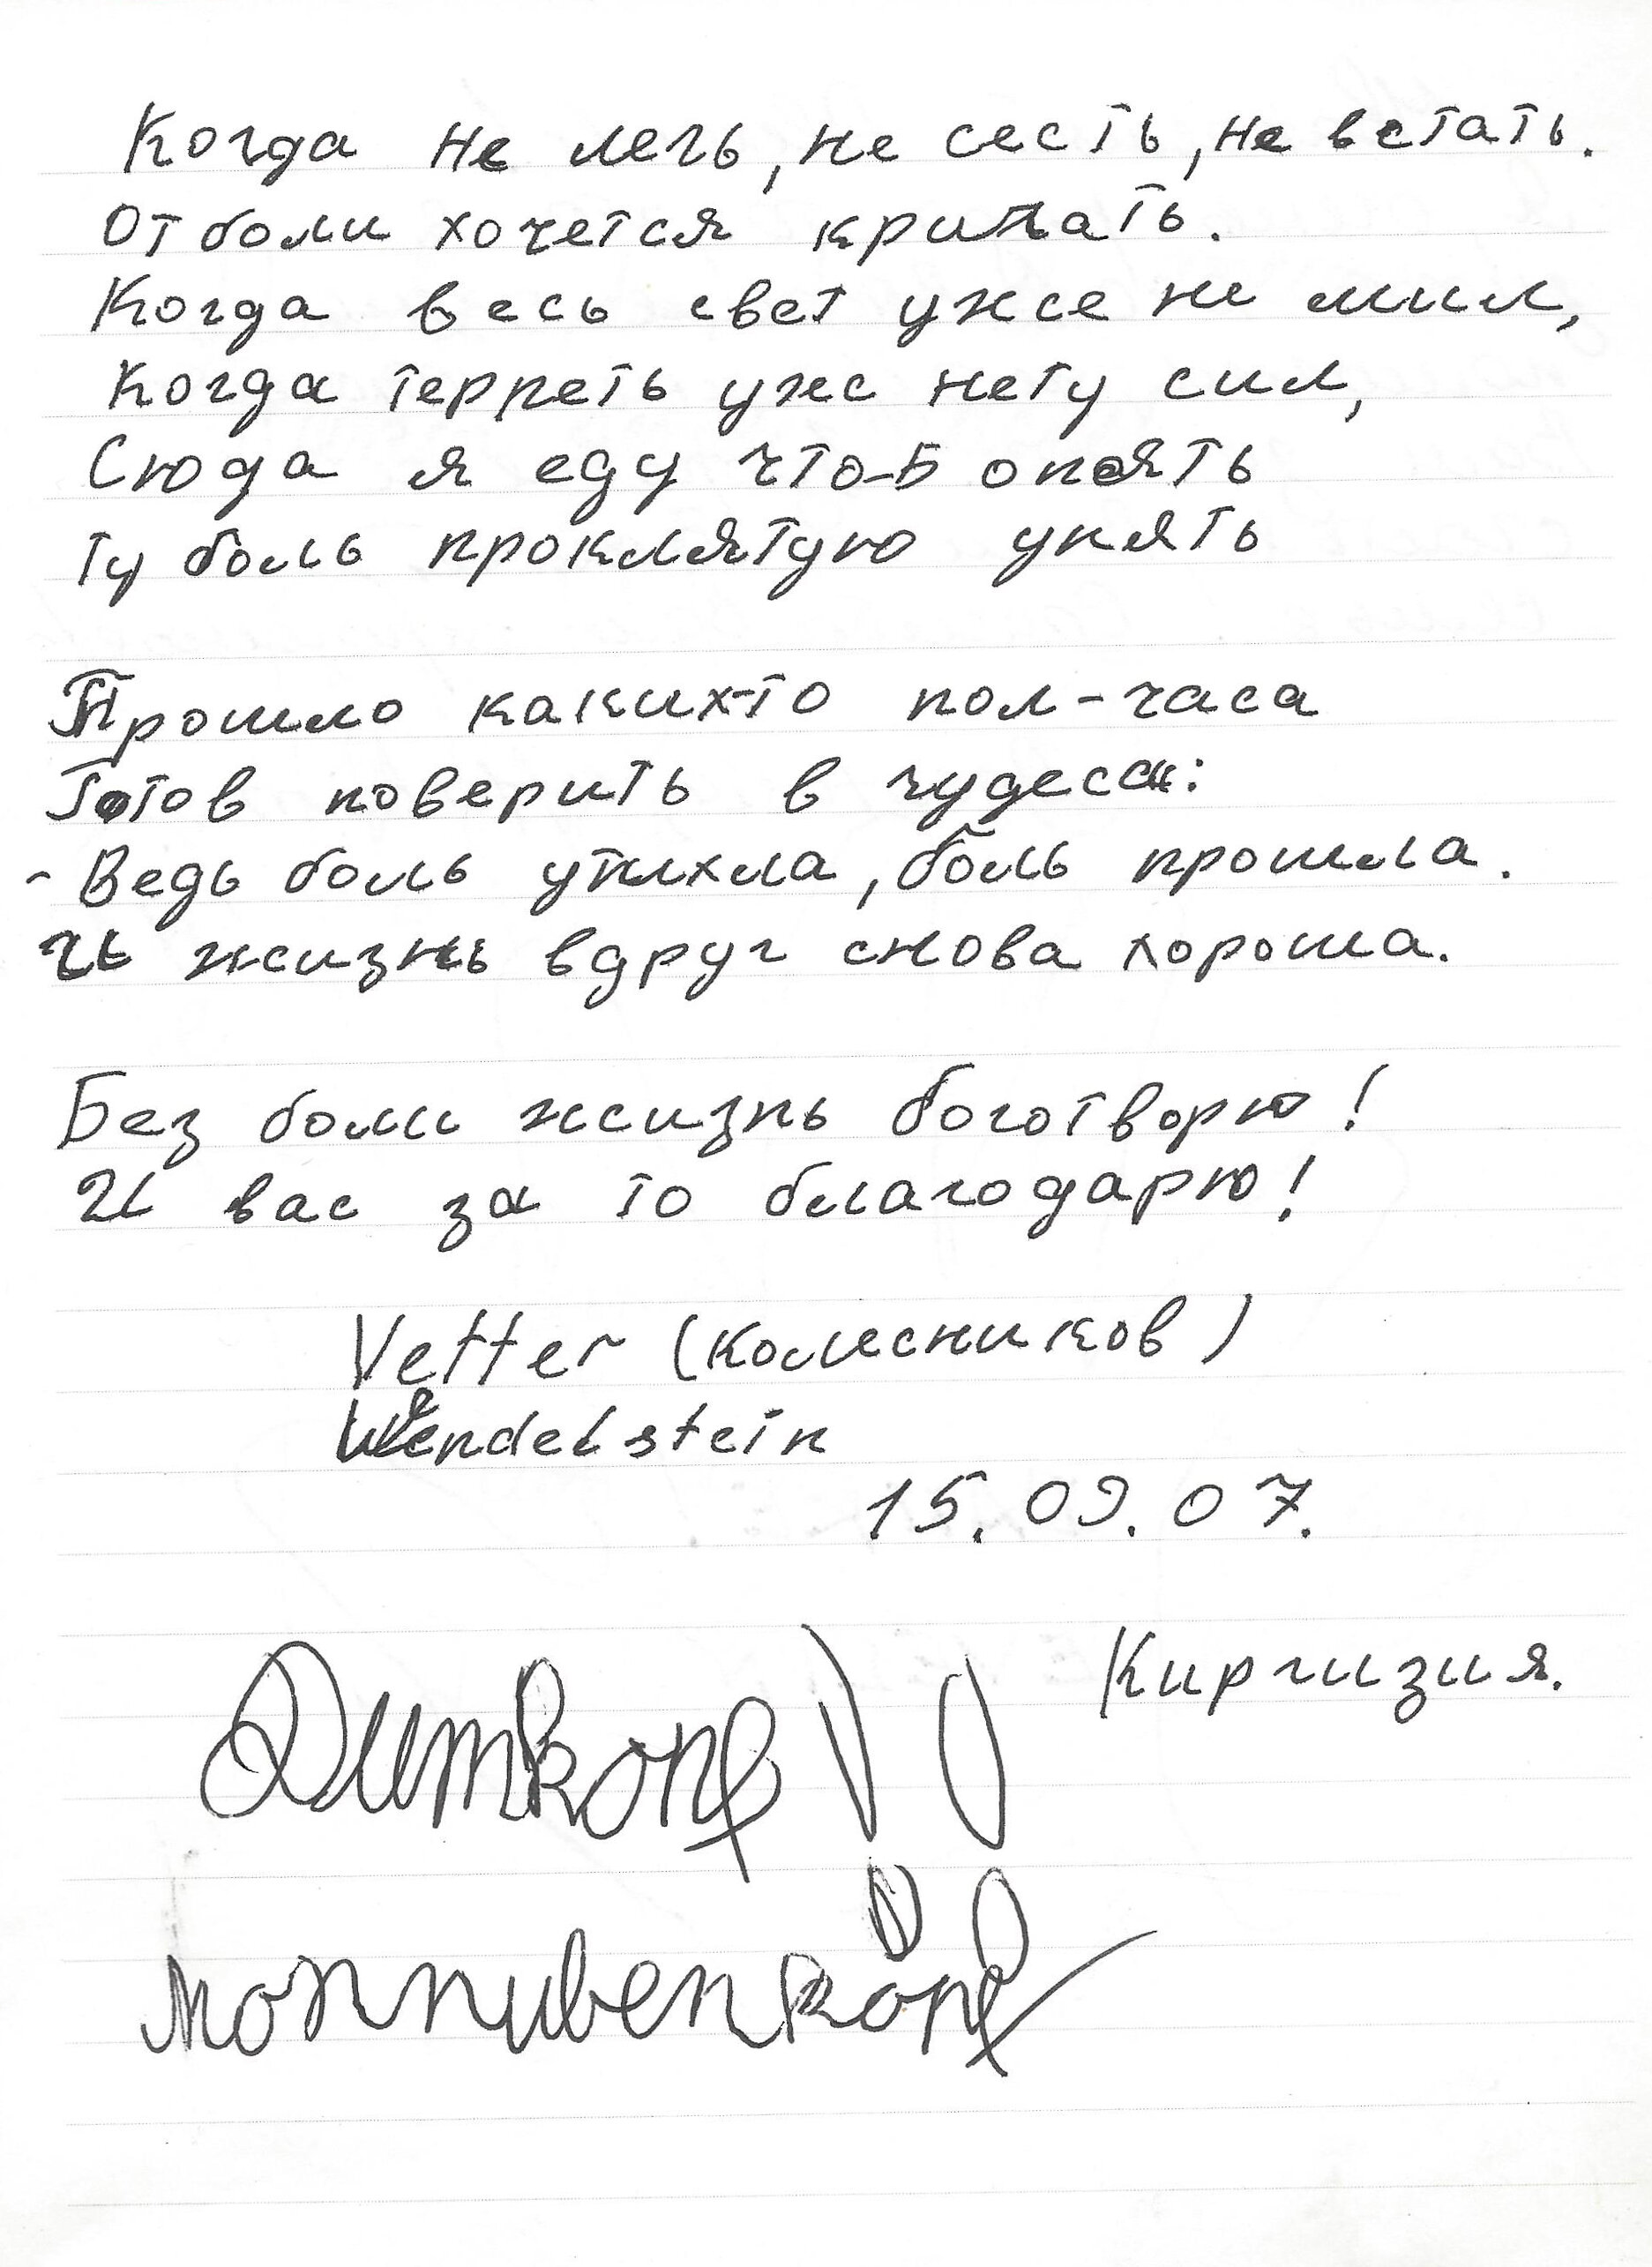 Когда не лечь, не сесть, не встать.
От боли хочется кричать.
Когда весь свет уже не мил,
Когда терпеть уже нету сил,
Сюда я еду что-б опять
ту боль проклятую унять
Прошло каких-то пол-часа
Готов поверить в чудеса:
- Ведь боль утихла, боль прошла.
И жизнь вдруг снова хороша.
Без боли жизнь боготворю!
И вас за то благодарю!
Vetter (Колесников)
Wendelstein
15.09.07.
Киргизия.